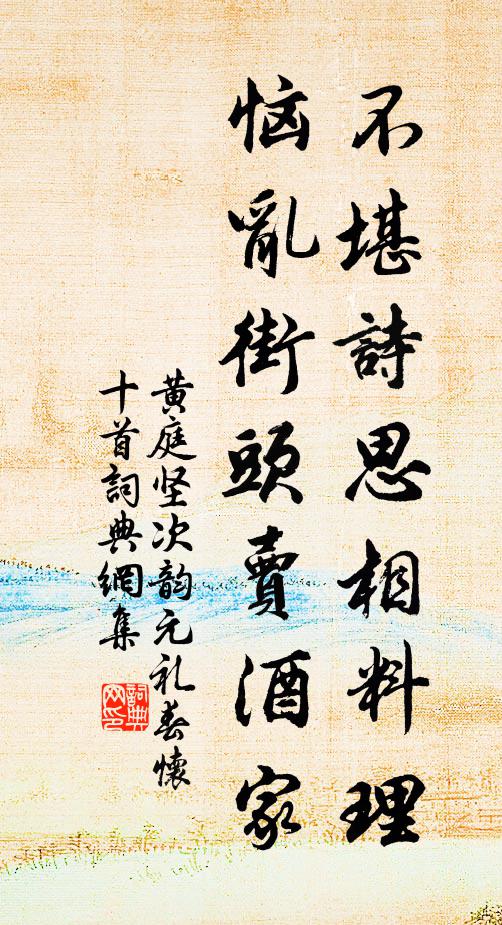 不堪詩思相料理
恼亂街頭賣酒家
黄庭坚次韵元礼春懷
十首詞典網集
詞典网印